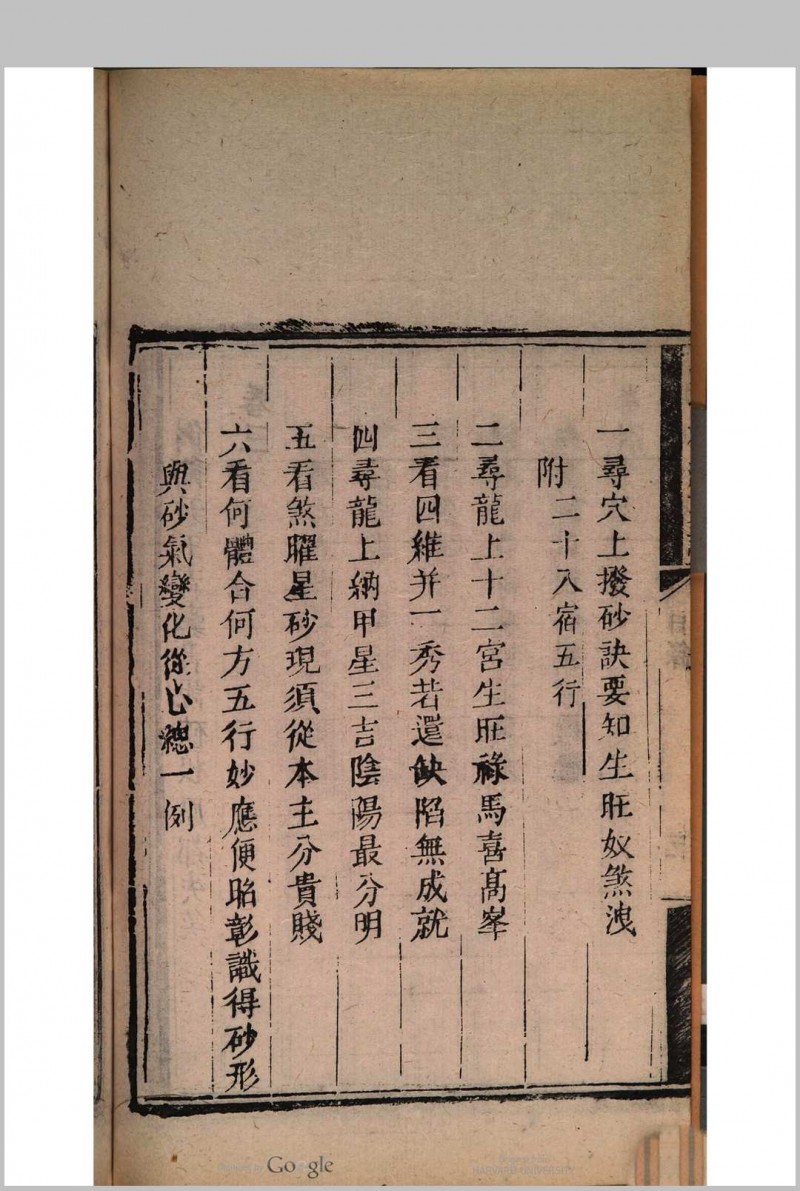 一尋穴上撥砂訣要知生旺奴煞洩
附二十八宿五行
二尋龍上十二宮生旺祿馬喜高峯
三看四維并一秀若還缺陷無成就
四尋龍上納甲星三吉陰陽最分明
五看煞曜星砂現須從本主分貴賤
六看何體合何方五行妙應便昭彰識得砂形
與砂氣變化從心總一例
Google